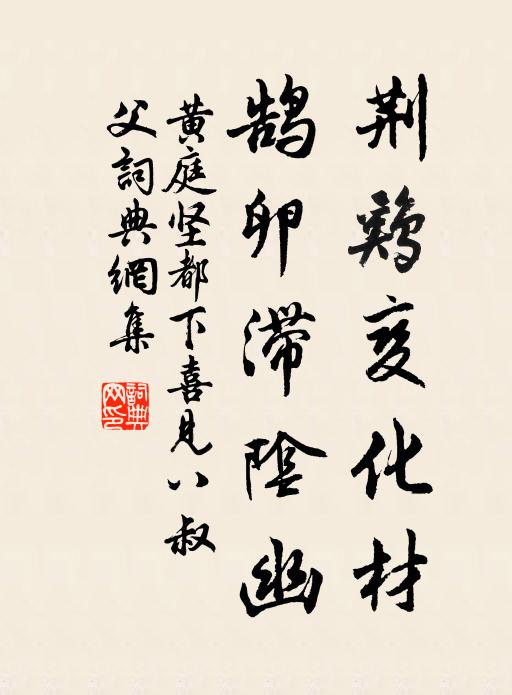 荆鷄变化材
鹄卵滞陰幽
黄庭坚都下喜見八叔
父詞典網集
詞典网印